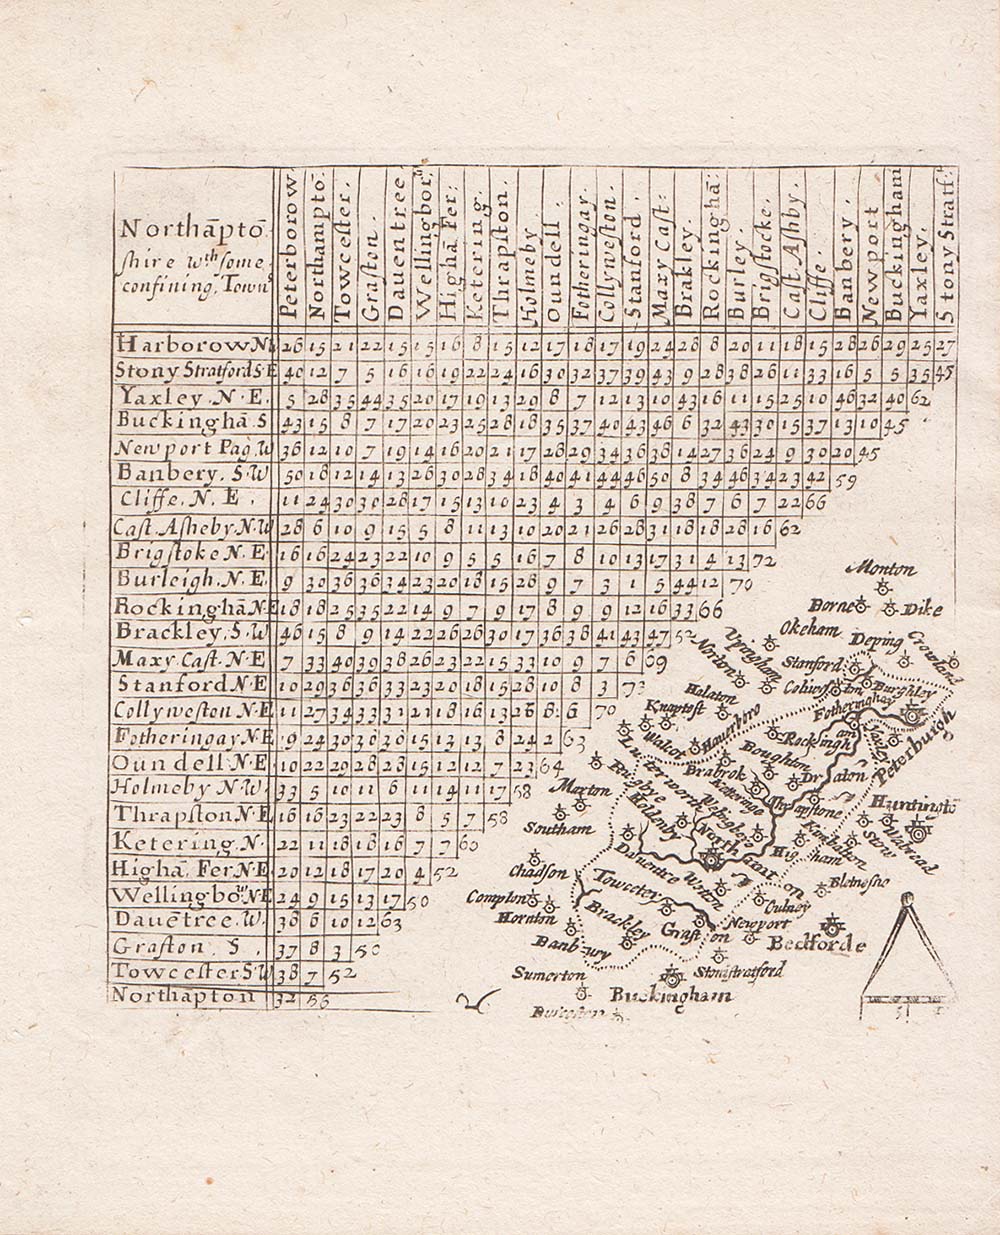 Northāptō
shire wth some
confining Towns
Peterborow
Northamptō.
Towcester.
Grafton.
Dauentree
Wellingbor.
Highā Fer:
Ketering.
Thrapston.
Holmeby
Oundell.
Fotheringay.
Collyweston.
Stanford.
Maxy Cast:
Brakley.
Rockinghā:
Burley.
Brigstocke.
Cast Ashby.
Cliffe.
Banbery.
Newport
Buckingham
Yaxley.
Stony Stratf:
Harborow N 26 15 21 22 15 15 16 8 15 12 17 18 17 19 24 28 8 20 11 18 15 28 26 29 25 27
Stony Stratford S.E 40 12 7 5 16 16 19 22 24 16 30 32 37 39 43 9 28 38 26 11 33 16 5 5 35 45
Yaxley N.E. 5 28 35 44 35 20 17 19 13 29 8 7 12 13 10 43 16 11 15 25 10 46 32 40 62
Buckinghā S 43 15 8 7 17 20 23 25 28 18 35 37 40 43 46 6 32 43 30 15 37 13 10 45
Newport Pag. W 36 12 10 7 19 14 16 20 21 17 28 29 34 36 38 14 27 36 24 9 30 20 45
Banbery. S.W 50 18 12 14 13 26 30 28 34 18 40 41 44 46 50 8 34 46 34 23 42 59
Cliffe. N. E. 11 24 30 30 28 17 15 13 10 23 4 3 4 6 9 38 7 6 7 22 66
Cast. Asheby N.W 28 6 10 9 15 5 8 11 13 10 20 21 26 28 31 18 18 28 16 62
Brigstoke N.E 16 16 24 23 22 10 9 5 5 16 7 8 10 13 17 31 4 13 72
Burleigh. N.E. 9 30 36 36 34 23 20 18 15 28 9 7 3 1 5 44 12 70
Rockinghā N.E 18 18 25 35 22 14 9 7 9 17 8 9 9 12 16 33 66
Brackley, S.W 46 15 8 9 14 22 26 26 30 17 36 38 41 43 47 52
Maxy Cast. N.E 7 33 40 39 38 26 23 22 15 33 10 9 7 6 69
Stanford N.E 10 29 36 36 33 23 20 18 15 28 10 8 3 73
Collyweston N.E 11 27 34 33 31 21 18 16 13 26 8 6 70
Fotheringay N.E 9 24 30 30 30 15 13 13 8 24 2 63
Oundell N.E 10 22 29 28 28 15 12 12 7 23 64
Holmeby N.W. 33 5 10 11 6 11 14 11 17 58
Thrapston N.E 16 16 23 22 23 8 5 7 58
Ketering N. 22 11 18 18 16 7 7 60
Highā Fer N.E 20 12 18 17 20 4 52
Wellingbo N.E 24 9 15 13 17 50
Dauētree W. 36 6 10 12 63
Grafton S. 37 8 3 50
Towcester S.W 38 7 52
Northapton 32 55
Monton
Borne
Dike
Okeham
Deping
Crowland
Vpingham
Stanford
Norton
Burghley
Fotheringhay
Halaton
Knaptoft
Hauerbro
Rocksingham
Yaxley
Peterburgh
Walcot
Boughton
Lutterworth
Brabrok
Rugbye
Ketteringe
Marton
Thrapstone
Huntingtō
Holdenby
Southam
Northamton
Kimbalton
Stow
Dauentre
Chadson
Towceter
Bletnesho
Compton
Hornton
Brackley
Grafton
Newport
Bedforde
Banbury
Stonistratford
Sumerton
Buckingham
5